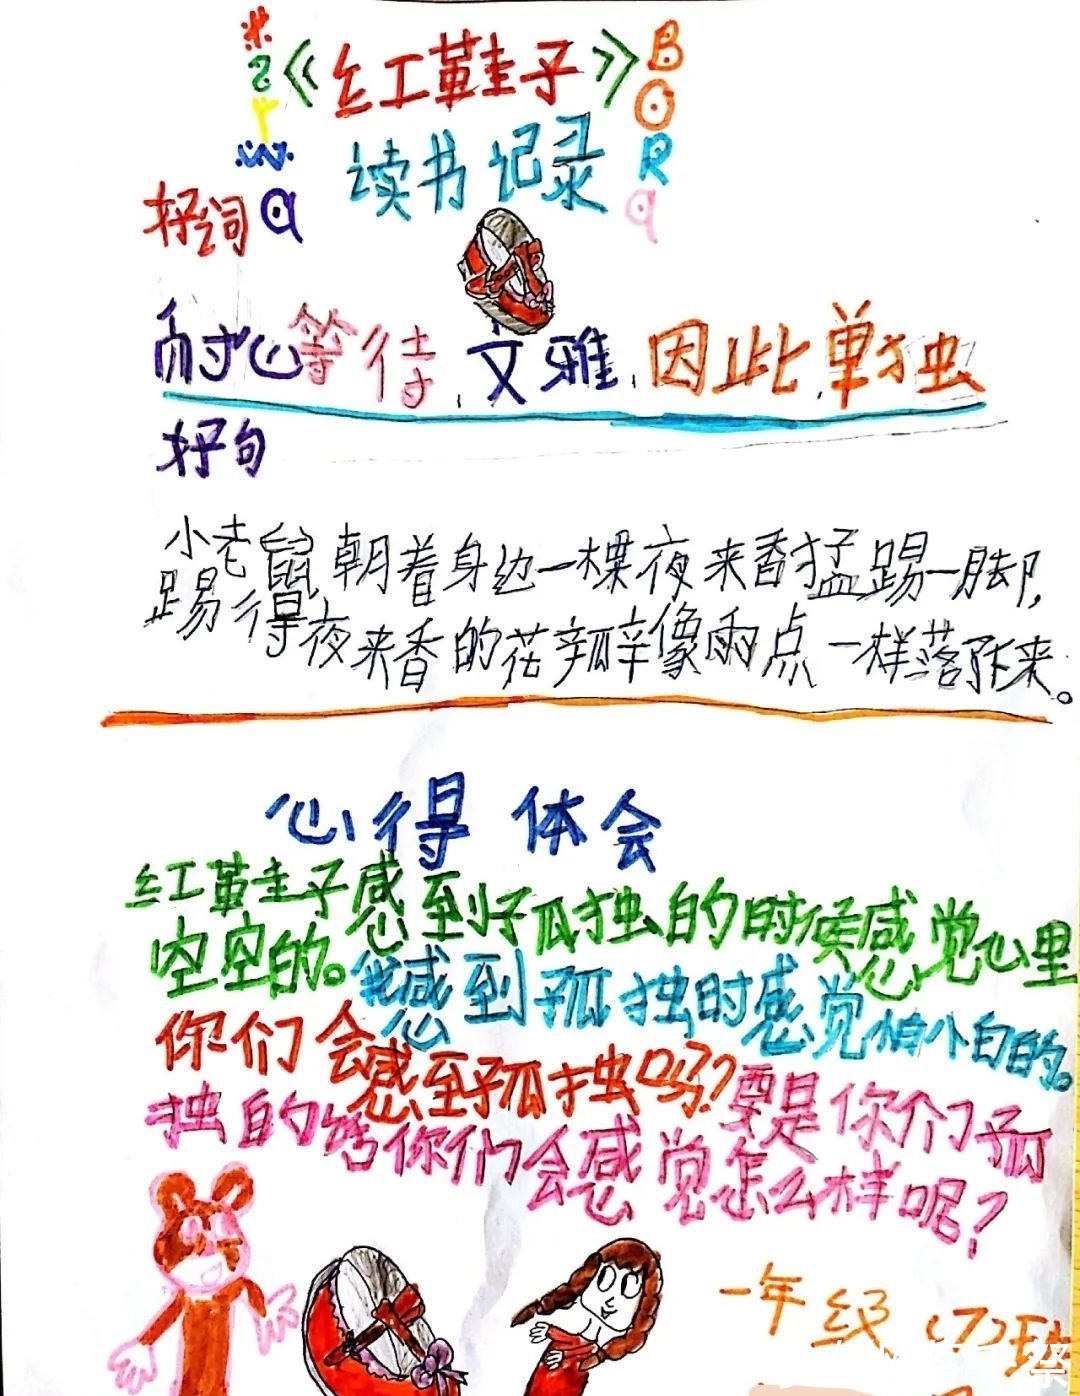 《红鞋子》
读书记录
好词
耐心等待、文雅、因此、单独
好句
小老鼠朝着身边一棵夜来香猛踢一脚,
踢得夜来香的花瓣像雨点一样落下来。
心得体会
红鞋子感到孤独的时候感觉心里
空空的。我感到孤独时感觉怕小白的。
你们会感到孤独吗?要是你们孤
独的话你们会感觉怎么样呢?
一年级(7)班